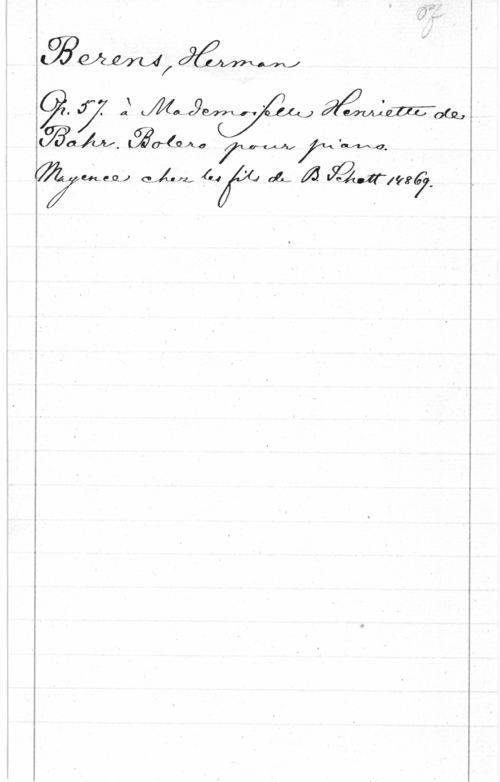 Berens, Herman
Op. 57. à Mademoiselle Henriette de
Bahr. Bolero pour piano.
Mayence chez les fils de B. Schott 14869.